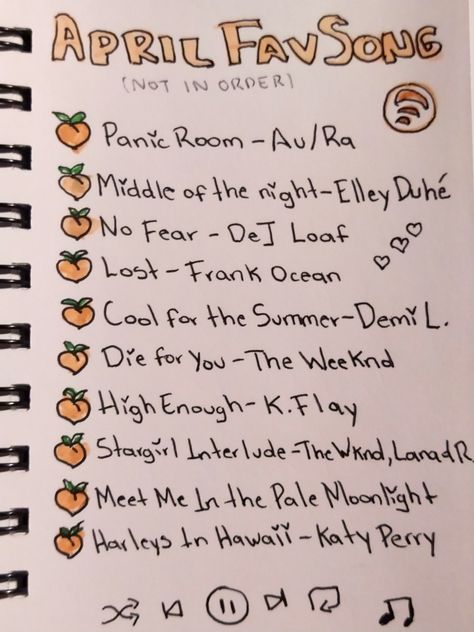 April Fav Song
(NOT IN ORDER)
Panic Room - Au/Ra
Middle of the night - Elley Duhé
No Fear - DeJ Loaf
Lost - Frank Ocean
Cool for the Summer - Demi L.
Die for You - The Weeknd
High Enough - K. Flay
Stargirl Interlude - The Wknd, Lana d R
Meet Me In the Pale Moonlight
Harleys In Hawaii - Katy Perry